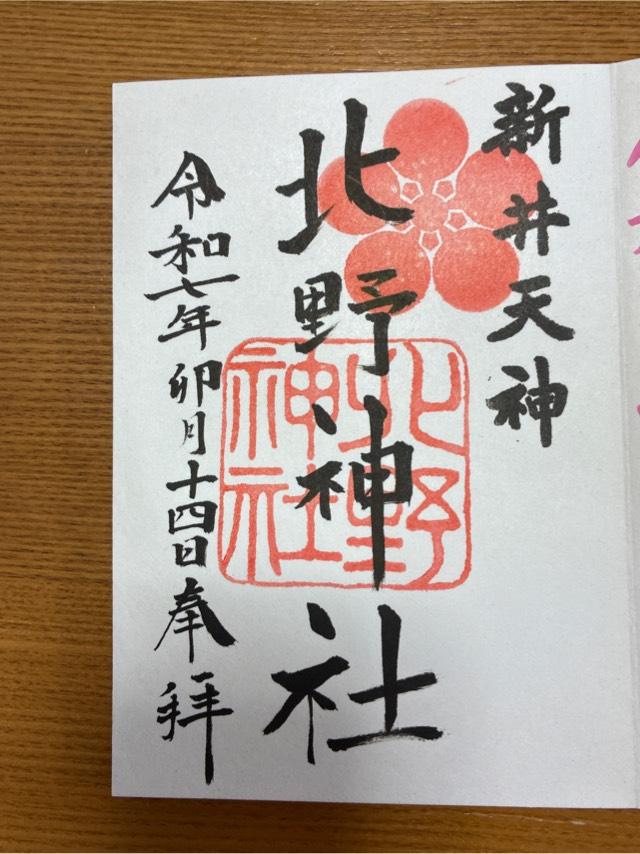 新井天神
北野神社
北野神社
令和七年卯月十四日奉拝